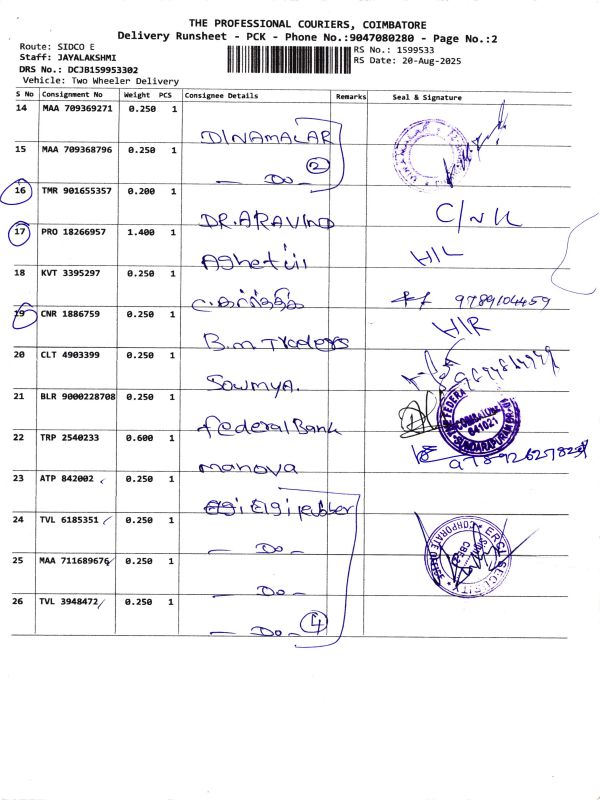 THE PROFESSIONAL COURIERS, COIMBATORE
Delivery Runsheet - PCK - Phone No.:9047080280 - Page No.:2
Route: SIDCO E
RS No.: 1599533
Staff: JAYALAKSHMI
RS Date: 20-Aug-2025
DRS No.: DCJB159953302
Vehicle: Two Wheeler Delivery
S No Consignment No Weight PCS Consignee Details Remarks Seal & Signature
14 MAA 709369271 0.250 1 DINAMALAR
15 MAA 709368796 0.250 1 — Do — 2
16 TMR 901655357 0.200 1 DR.ARAVIND
17 PRO 18266957 1.400 1 H/L
18 KVT 3395297 0.250 1 9789104459
19 CNR 1886759 0.250 1 B.m Traders H/R
20 CLT 4903399 0.250 1 Sowmya.
21 BLR 9000228708 0.250 1 federal Bank
COIMBATORE
641021
22 TRP 2540233 0.600 1 manova
23 ATP 842002 0.250 1
24 TVL 6185351 0.250 1 — Do —
CORPORATE OFFICE
25 MAA 711689676 0.250 1 — Do —
26 TVL 3948472 0.250 1 — Do — 4